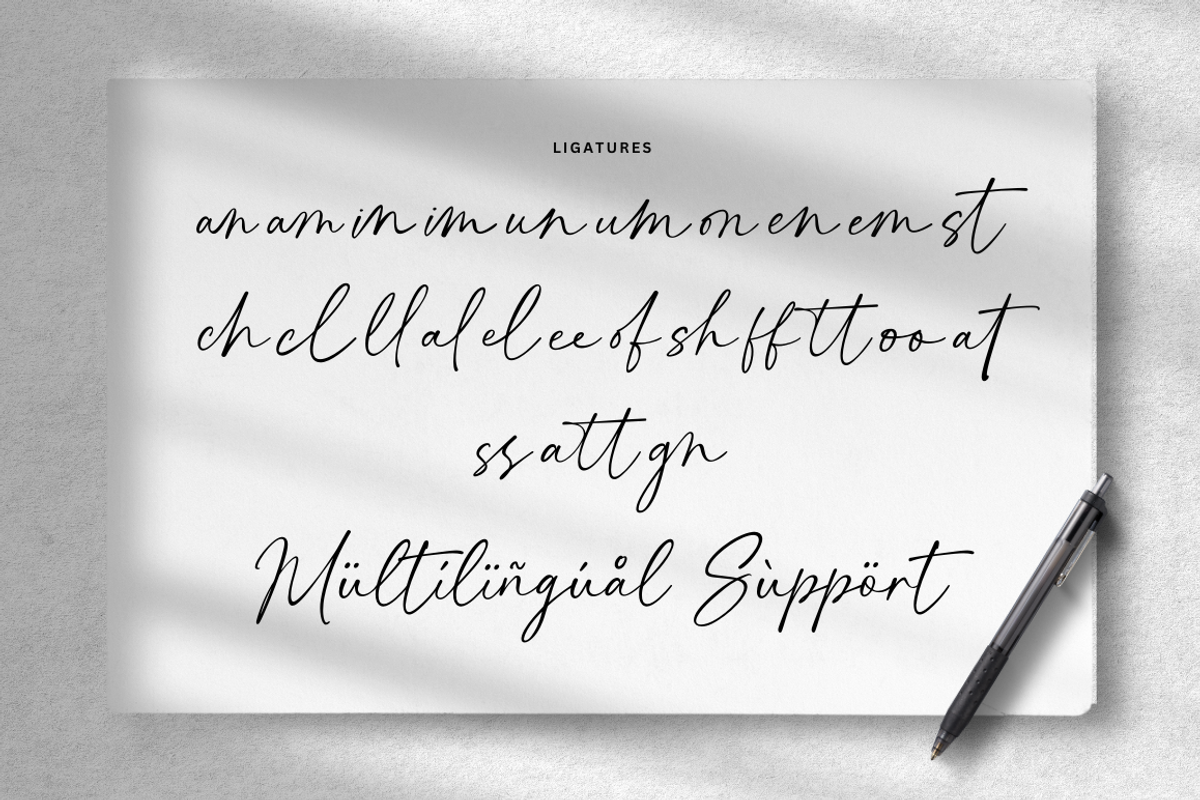 LIGATURES
an am in im un um on en em st
ch cl ll al el ee of sh ff tt oo at
ss att gn
Mültílïñgúål Sùppört